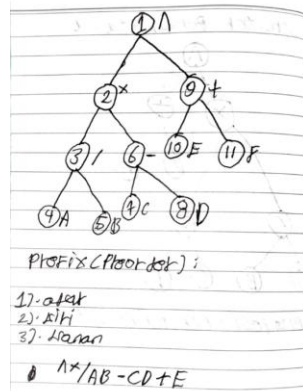 1 ^
2 * 9 +
3 / 6 - 10 E 11 F
4 A 5 B 7 C 8 D
Prefix (Preorder) :
1). akar
2). kiri
3). kanan
^*/AB-CD+E